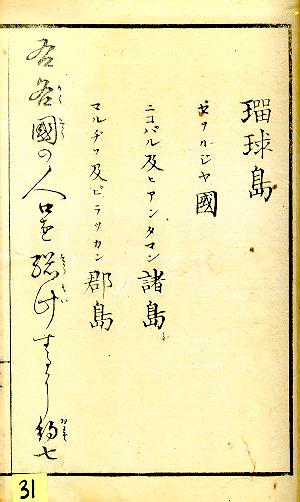 瑠球島
ゼヲルジヤ國
ニコバル及ヒアンダマン諸島
マルヂフ及ビラッカン郡島
右各國の人口を総計すれバ約七
31